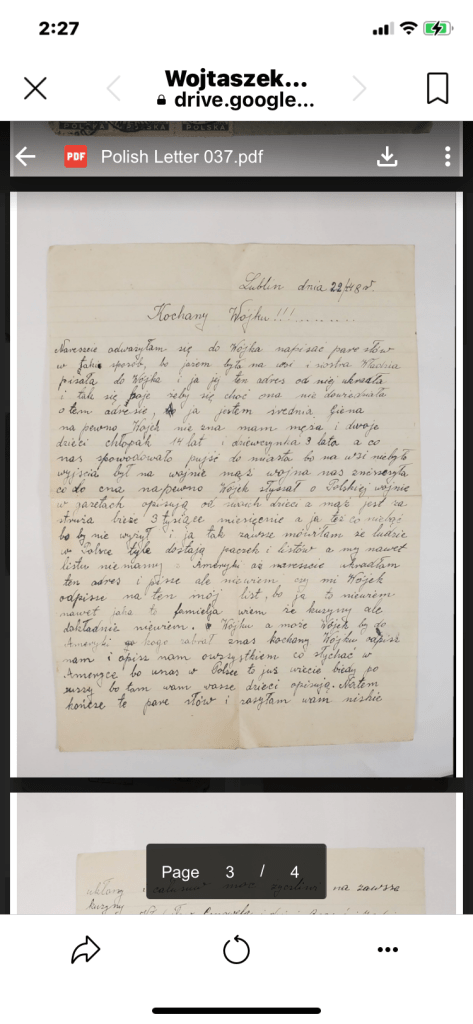 2:27
Wojtaszek...
drive.google...
POLSKA
PDF Polish Letter 037.pdf
Lublin dnia 22/48 r.
Kochany Wójku !!!........
Nareszcie odwarzyłam się do Wójka napisać pare słów
w taki sposób, bo jasem była na wsi i siostra Władzia
pisała do Wójka i ja jej ten adres od niej ukradła
i tak się boje żeby się choć ona nie dowiedziała
o tem adresie, ja jestem średnia Giena
na pewno Wójek nie zna mam męża i dwoje
dzieci chłopak 14 lat i dziewcynka 9 lata a co
nas spowodowało pujść do miasta bo na wsi niebyło
wyjścia był na wojnie mąż wojna nas zniszczyła
co do cna napewno Wójek słyszał o Polskiej wojnie
w gazetach opisują od swoich dzieci a mąż jest za
struża bieże 3 tysiące miesięcznie a ja też co niebąć
bo by nie wyżył i ja tak zawsze mówiłam że ludzie
w Polsce tyle dostają paczek i listów a my nawet
listu niemamy z Ameryki aż nareszcie ukradłam
ten adres i pisze ale niewiem czy mi Wójek
odpisze na ten mój list, bo ja to niewiem
nawet jaka to famielja wiem że kuzyny ale
dokładnie niewiem. Wójku a może Wójek by do
Ameryki go kogo zabrał z nas kochany Wójku napisz
nam i opisz nam owszystkiem co słychać w
Ameryce bo unas w Polsce to już wiecie biedy po
uszszy bo tam wam wasze dzieci opisują. Natem
kończe te pare słów i zasyłam wam niskie
Page 3 / 4
ukłony i całuniur moc życzliwa na zawsze
kuzyny